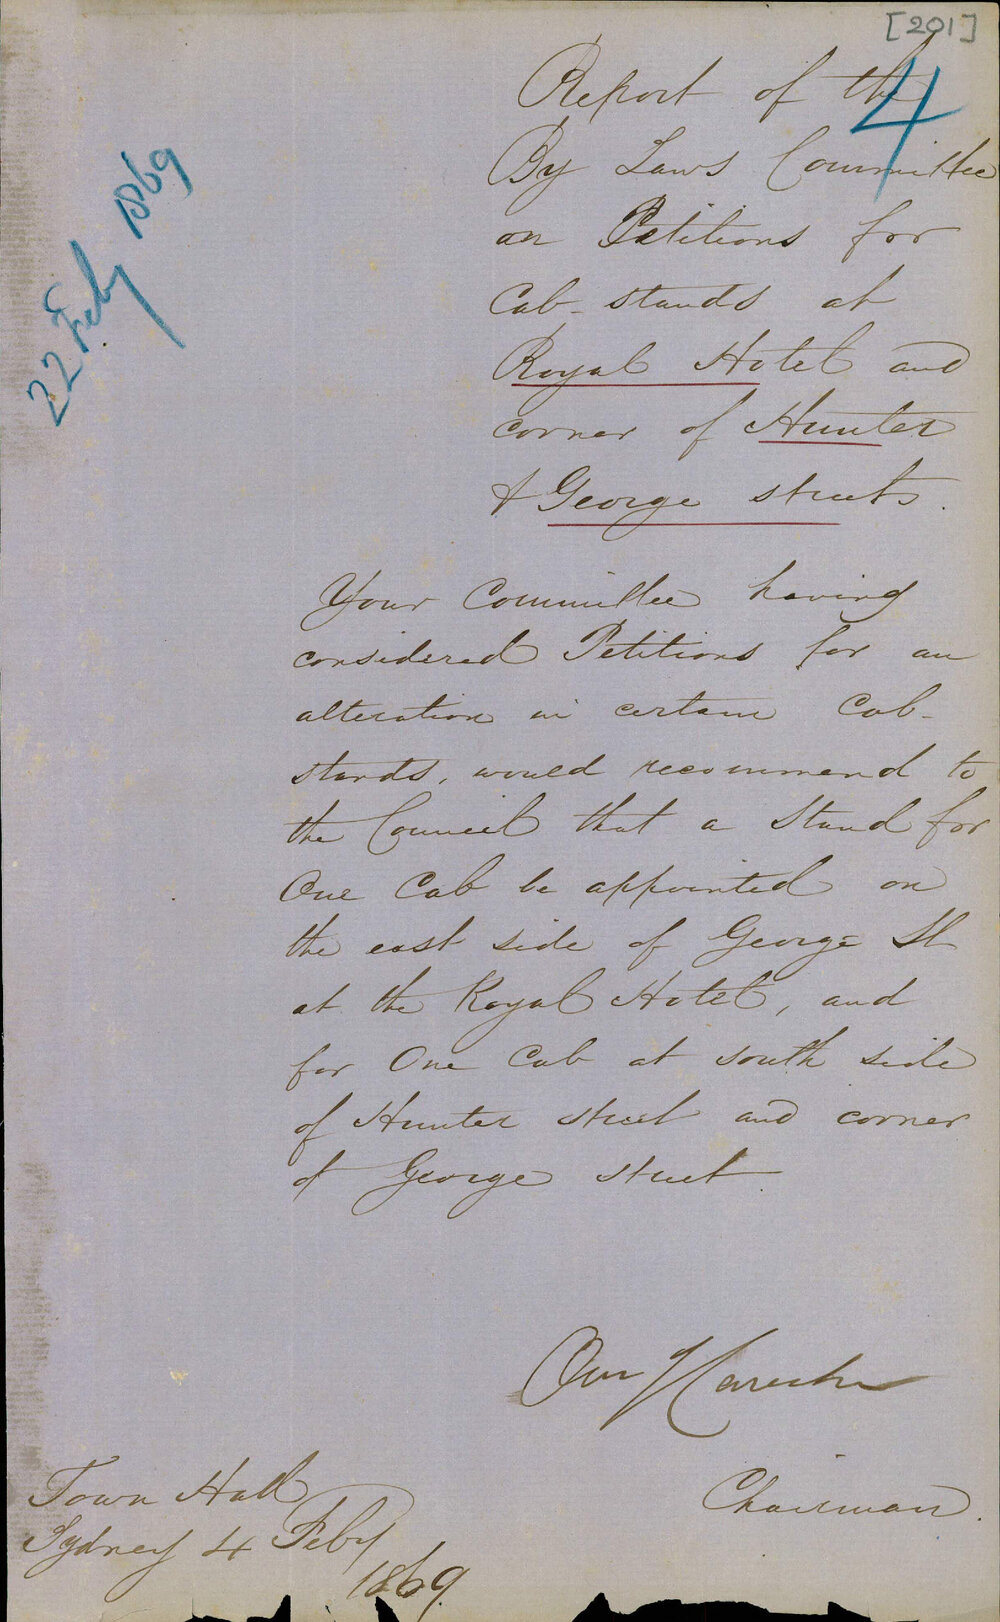 [201]
4
22 Feby 1869
Report of the
By Laws Committee
on Petitions for
Cab-stands at
Royal Hotel and
corner of Hunter
& George streets.
Your Committee having
considered Petitions for an
alteration in certain Cab-
stands, would recommend to
the Council that a Stand for
One Cab be appointed on
the east side of George St
at the Royal Hotel, and
for One Cab at south side
of Hunter street and corner
of George street
Chairman.
Town Hall
Sydney 4 Feby
1869